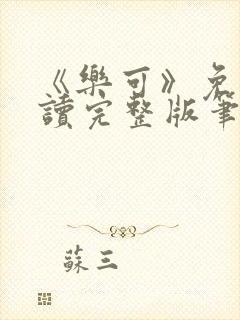 《樂可》免
讀完整版筆
蘇三